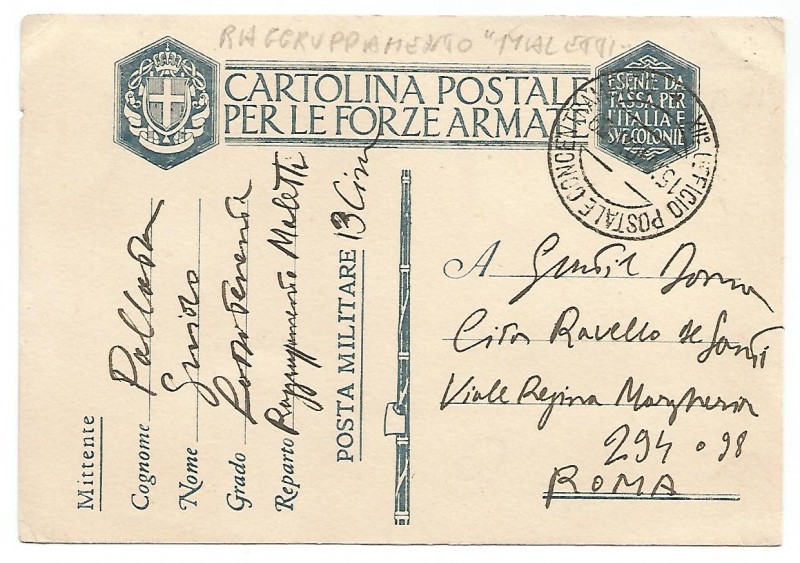 RAGGRUPPAMENTO "MALETTI"
CARTOLINA POSTALE
PER LE FORZE ARMATE
ESENTE DA
TASSA PER
L'ITALIA E
SVE COLONIE
UFFICIO POSTALE CONCENTRAMENTO
Mittente
Cognome
Nome Guido
Grado Sottotenente
Reparto Raggruppamento Maletti
POSTA MILITARE 13
A Gentil Donna
Clara Ravello de Santi
Viale Regina Margherita
294 o 98
ROMA